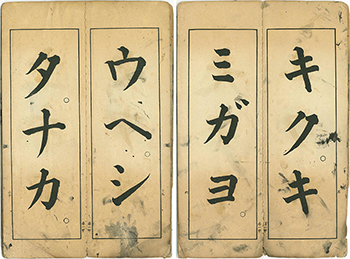 キクキ
ミガヨ
ウヘシ
タナカ